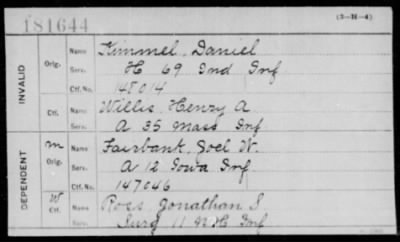 181644
(3-H-4)
INVALID
Orig. Name Kimmel, Daniel
Serv. H 69 Ind Inf
Ctf. No. 148014
Ctf. Name Willis, Henry A
Serv. A 35 Mass Inf
DEPENDENT
m Orig. Name Fairbank, Joel W.
Serv. A 12 Iowa Inf
Ctf. No. 147046
W Ctf. Name Ross, Jonathan S
Serv. Surg 11 N H Inf